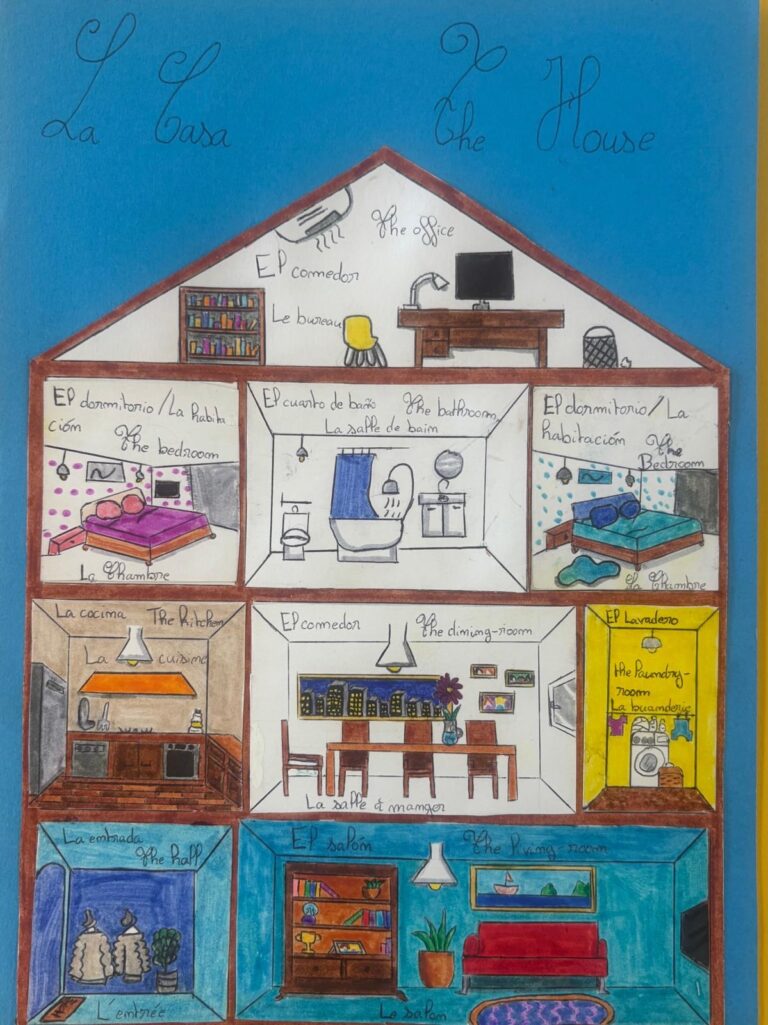 La Casa
The House
The office
El comedor
Le bureau
El dormitorio/La habita
ción
The bedroom
La Chambre
El cuarto de baño
The bathroom
La salle de baim
El dormitorio/La
habitación
The
Bedroom
La Chambre
La cocina
The Kitchen
La cuisine
El comedor
The dining-room
La salle à manger
El Lavadero
the laundry-
room
La buanderie
La entrada
The hall
L'entrée
El salón
The living-room
Le salon